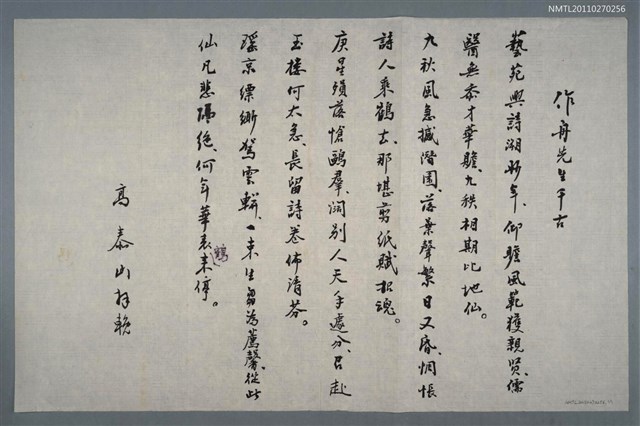 NMTL20110270256
作舟先生千古
藝苑興詩溯年、仰瞻風範獲親賢、儒
醫無忝才華贍、九秩相期比地仙。
九秋風急撼潛園、落葉聲繁日又昏、惆悵
詩人乘鶴去、那堪剪紙賦招魂。
庚星殞落愴鷗羣、闊別人天手遽分、君赴
玉樓何太急、長留詩卷佈清芬。
瑤京縹緲駕雲軿、一束生芻為薦馨、從此
仙凡悲隔絕、何年華表鶴来停。
高泰山拜輓